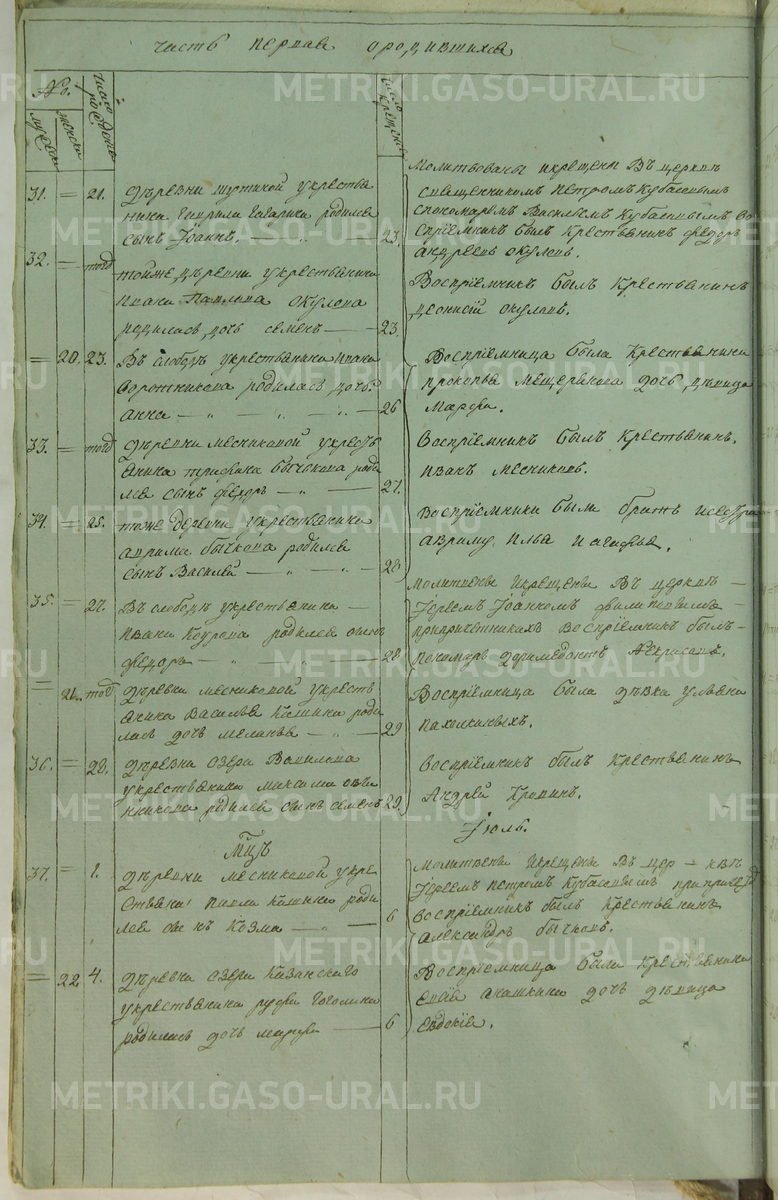 часть первая о родившихся
№.
мужеск
женск
число рожден
число крещения
31. = 21. Деревни Шутиной у крестья
нина Гаврила Гагарина родился
сынъ Іоаннъ. — 23.
Молитвованы и крещены Въ церкви
священникомъ Петромъ Кубасовымъ
с пономаремъ Васильемъ Кубасовымъ Во
спріемникъ былъ Крестьянинъ Федоръ
Андреевъ Окуловъ.
32. = тогд той же деревни у крестьянина
Ивана Павлова Окулова
родилась дочь семенъ — 23.
Воспріемникъ былъ Крестьянинъ
Деонисій Окуловъ.
= 20. 23. Въ слободѣ у крестьянина Ивана
Воротникова родилась дочь
анна — „ — „ — „ — 26
Воспріемница была Крестьянина
Прокопья Мещерякова дочь дѣвица
Марфа.
33. = тогд деревни Месниковой у кресть
янина Трифона Бычкова роди
лся сынъ Федоръ — „ — 27.
Воспріемникъ былъ Крестьянинъ
Иванъ Месниковъ.
34. = 25. тоже деревни у крестьянина
Аврама Бычкова родился
сынъ Василей — „ — „ — 28
Воспріемники были братъ и сестра
Авраму Илья и Агафья.
35. = 27. Въ слободѣ у крестьянина —
Ивана Коурова родился сынъ
Федоръ — „ — „ — 28
Молитвены И крещены Въ церквѣ —
Іереемъ Іоанномъ Филиповымъ —
при причетникахъ Воспріемникъ былъ —
Пономарь Доримедонтъ Некрасовъ.
= 21. тогд Деревни месниковой у кресть
янина Василья Кашина роди
лась дочь Меланья — „ — 29
Воспріемница была дѣвка Ульяна
Пахолкиныхъ.
36. = 28. Деревни Озера Вавилова
у крестьянина Максима Овчи
никова родился сынъ Семенъ 29.
Воспріемникъ былъ Крестьянинъ
Андрей Кропинъ.
Мцъ
Іюль.
37. = 1. Деревни Месниковой у кре
стьяни: Павла Кашина роди
лся сынъ Козма — „ — 6
Молитвены И крещены Въ цер — квѣ
Іереемъ Петромъ Кубасовымъ при причетн
Воспріемникъ былъ Крестьянинъ
Александръ Бычковъ.
= 22 4. Деревни Озера Казанскаго
у крестьянина Гоголина
родилась дочь Марфа — 6
Воспріемница была Крестьянина
Анашкина дочь дѣвица
Евдокія.
METRIKI.GASO-URAL.RU